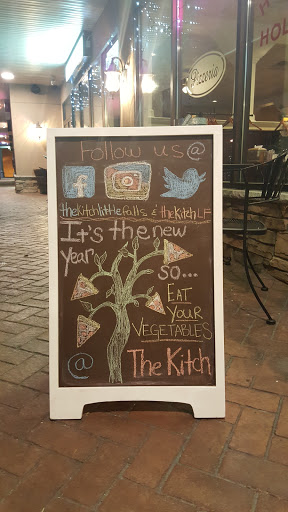 Follow us @
thekitchlittlefalls & thekitchLF
It's the new
year
so...
EAT
YOUR
VEGETABLES
@ The Kitch
Pizzeria
HOL